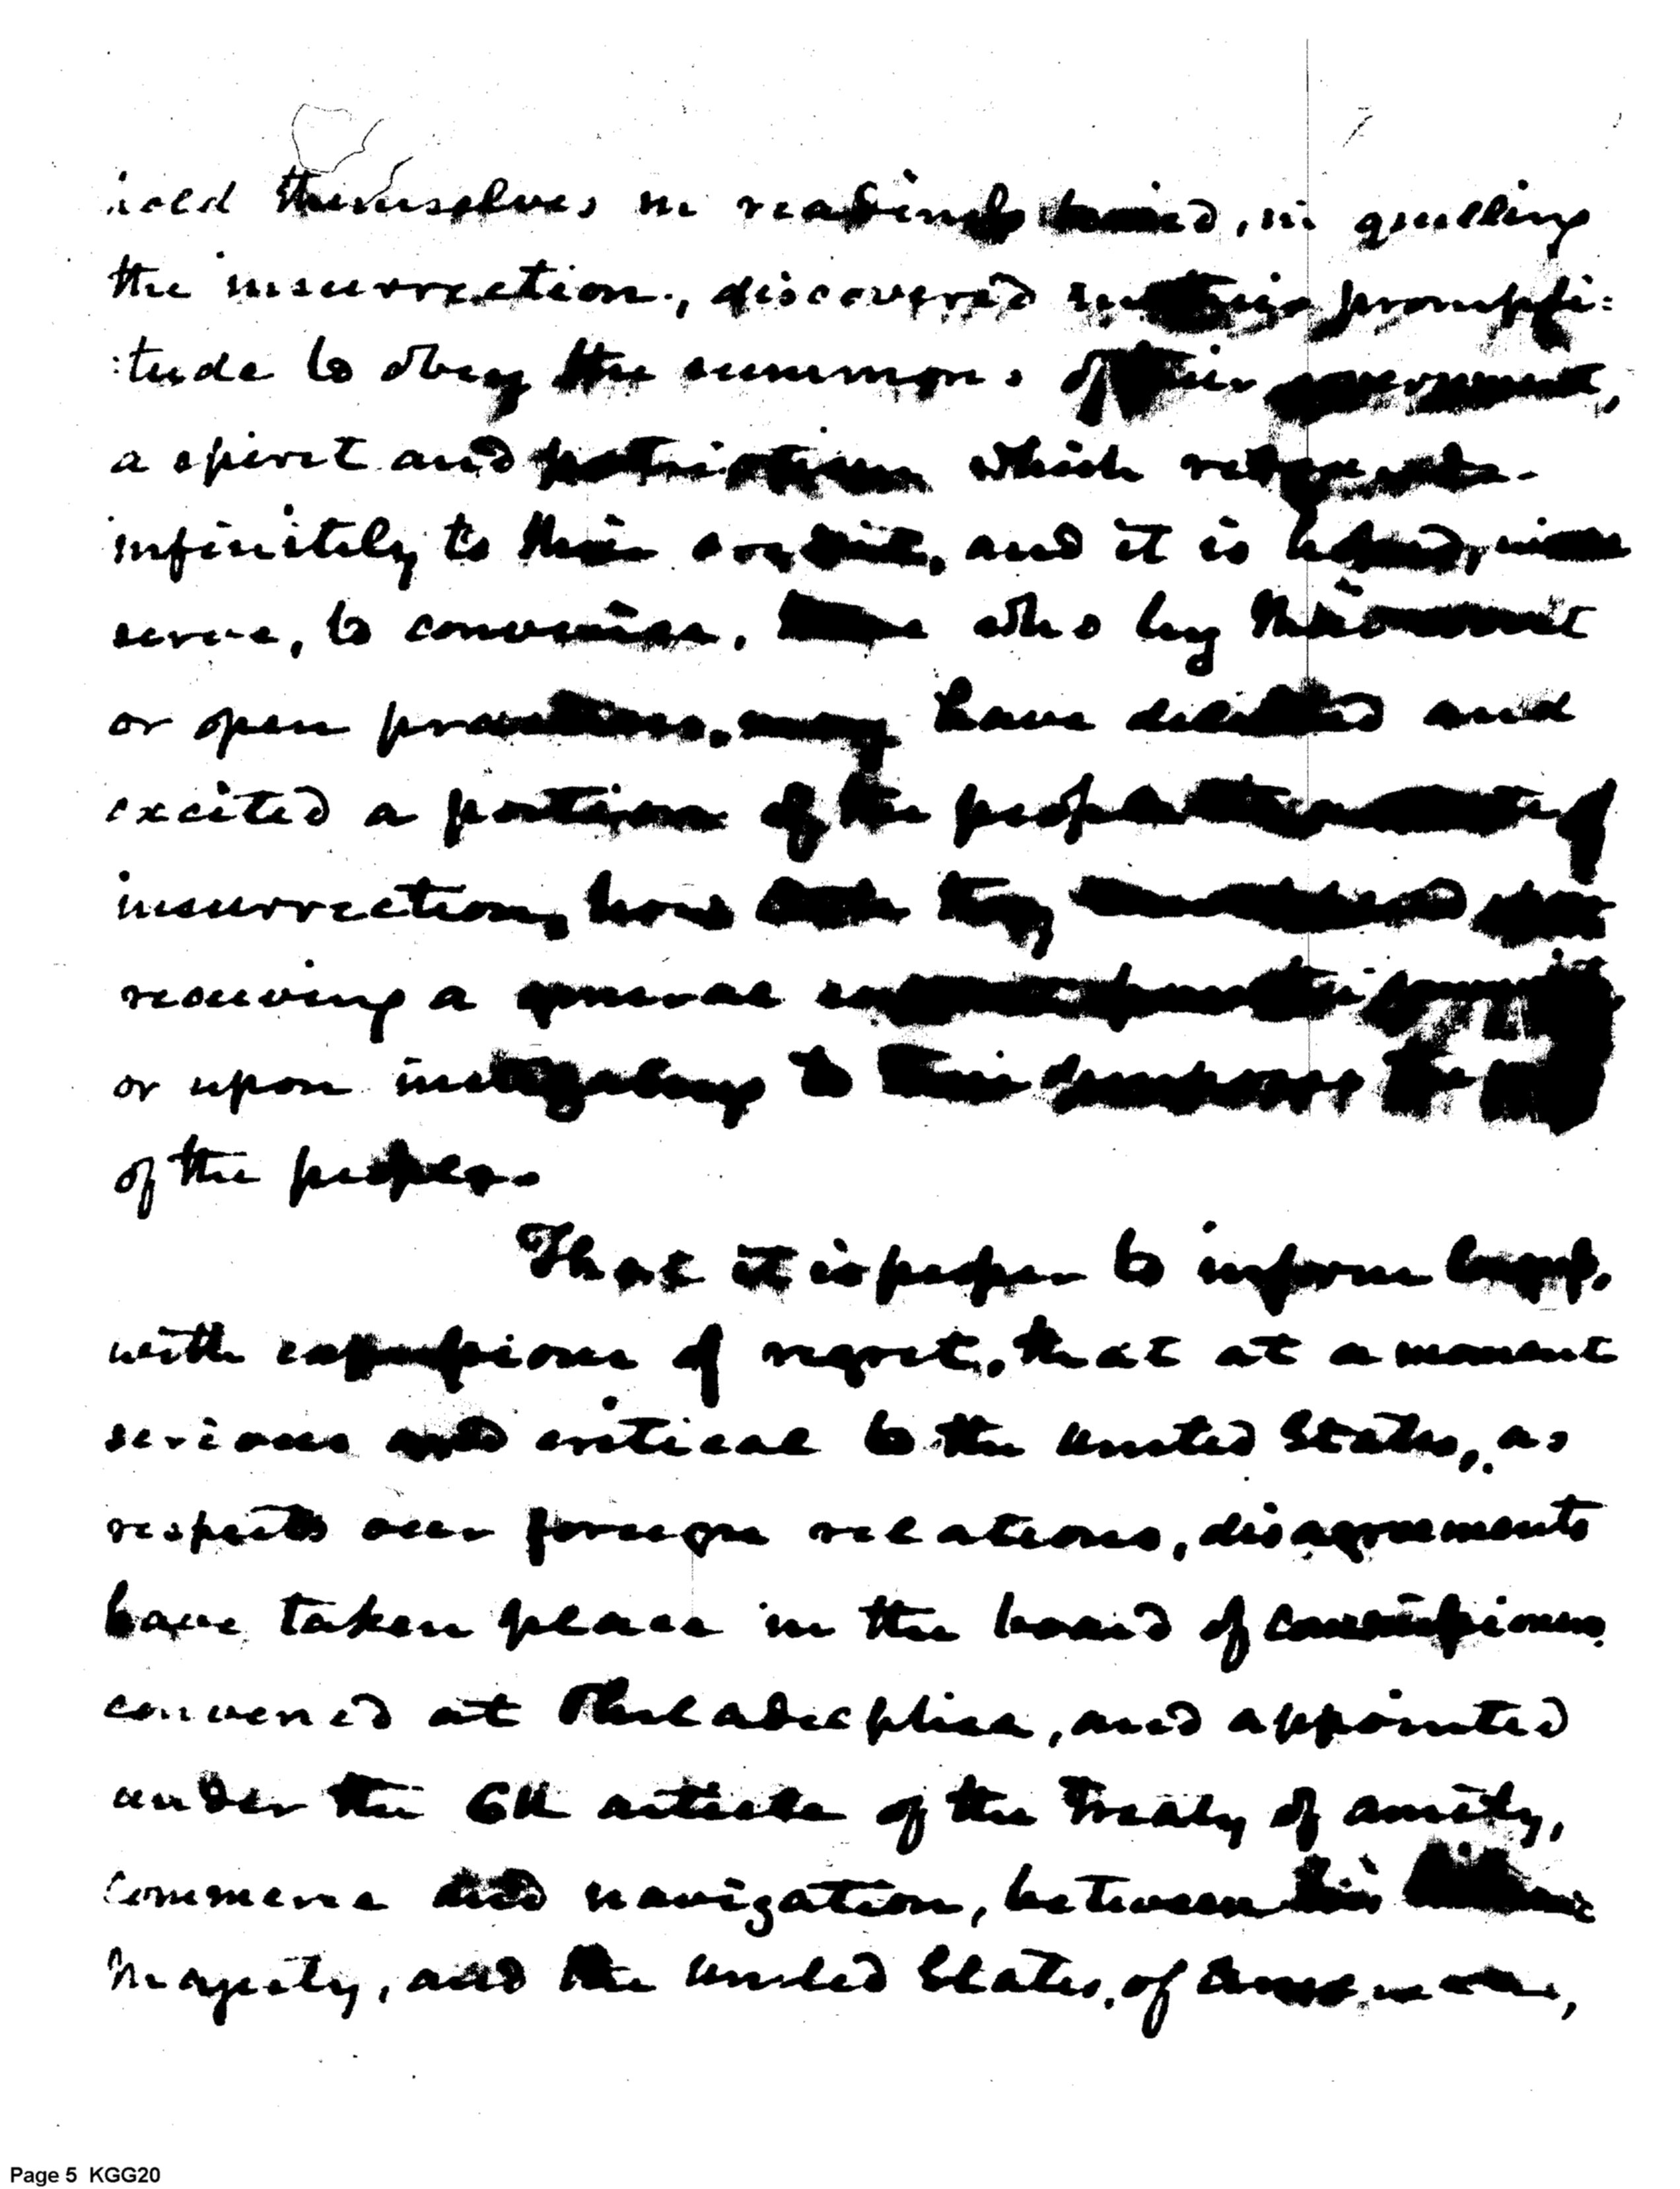 hold themselves in readiness to aid, in quelling
the insurrection, discovered in their prompti:
:tude to obey the summons of their government,
a spirit and patriotism which redounds
infinitely to their credit, and it is hoped, will
serve, to convince, those who by
or open practices, may have deluded and
excited a portion of the people of
insurrection, how little they
receiving a general
or upon instigating to their purposes the
of the people.
That it is proper to inform Congs.
with expressions of regret, that at a moment
serious and critical to the United States, as
respects our foreign relations, disagreements
have taken place in the board of commissioners
convened at Philadelphia, and appointed
under the 6th article of the Treaty of amity,
commerce and navigation, between his Britannic
Majesty, and the United States, of America,
Page 5 KGG20